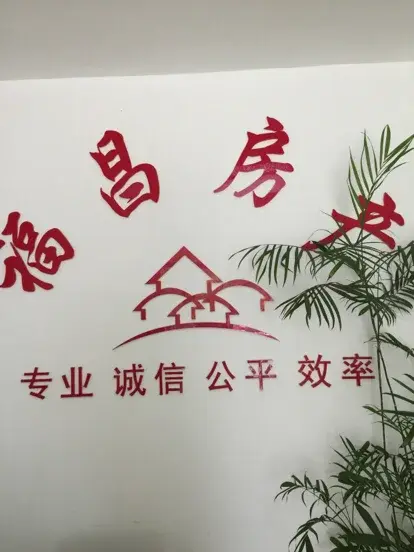 福昌房产
专业 诚信 公平 效率